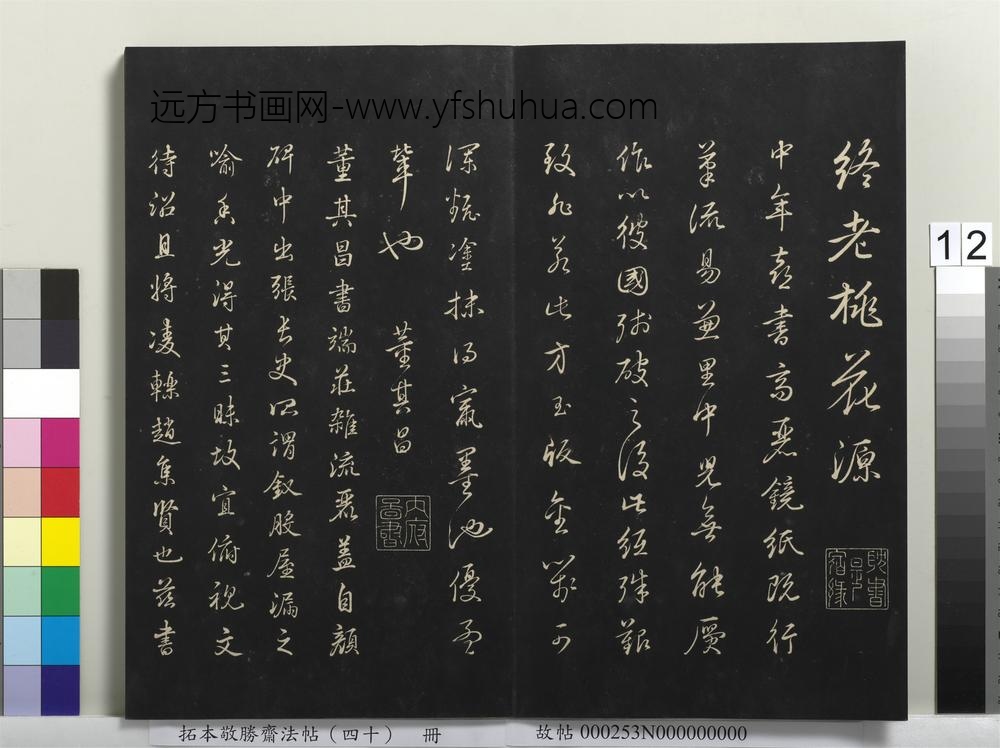 远方书画网-www.yfshuhua.com
終老桃花源
中年喜書高麗鏡紙既行
筆流易兼里中兒無能贗
作以彼國殘破之後此紙殊艱
致非若此方玉版金箋可
渾穢塗抹得窳墨池優孟
輩也 董其昌
董其昌書端莊雜流麗蓋自顏
碑中出張長史所謂釵股屋漏之
喻香光得其三昧故宜俯視文
待詔且將凌轢趙集賢也茲書
12
拓本敬勝齋法帖（四十） 冊
故帖 000253N000000000